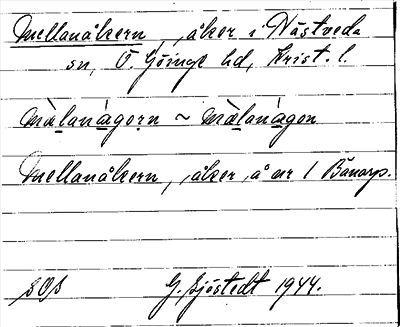 Mellanåkern, åker i Nästveda
sn, Ö. Göinge hd, Krist. l.
mæ̀lanágorn ~ mæ̀lanágon
Mellanåkern, åker, å nr 1 Bänarp.
SOS G. Sjöstedt 1944.